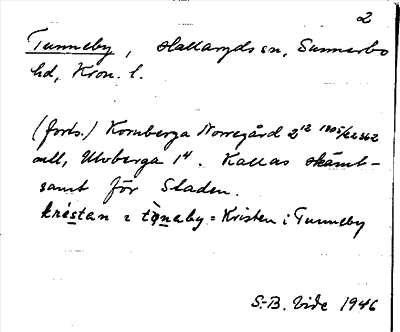 2
Tunneby, Hallaryds sn, Sunnerbo
hd, Kron. l.
(forts.) Kornberga Norregård 2¹²
och, Ulvberga 1⁴. Kallas skämt-
samt för Staden.
kréstan i tònaby = Kristen i Tunneby
S.-B. Vide 1946